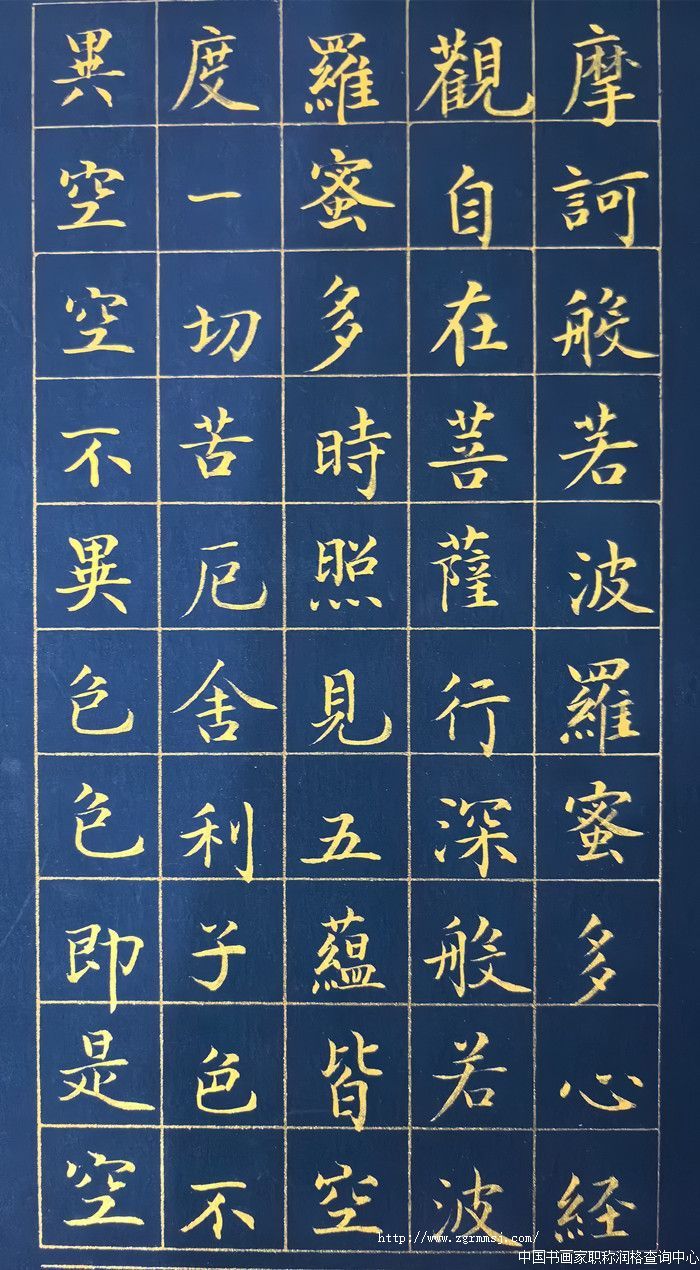 摩訶般若波羅蜜多心経
觀自在菩薩行深般若波
羅蜜多時照見五蘊皆空
度一切苦厄舍利子色不
異空空不異色色即是空
http://www.zgrmmsj.com/
中国书画家职称润格查询中心